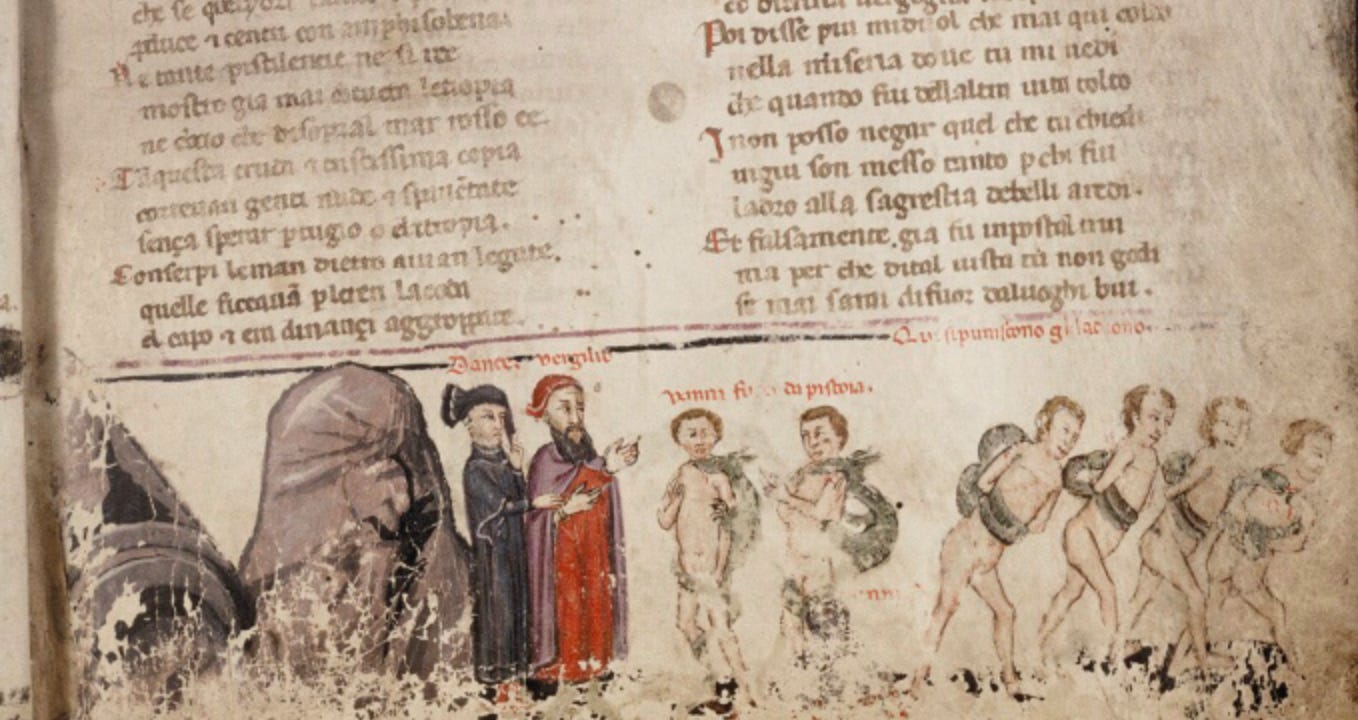 che se
pduce ⁊ centri con amphisobena.
Ne tante pistilencie ne si ree
mostro gia mai letiopia
ne cio che disopral mar rosso ee.
Tra questa cruda ⁊ tristissima copia
correuan genti nude ⁊ spauētate
sença sperar ptugio o elitropia.
Con serpi le man dietro auian legate.
quelle ficcauā p le ren la coda
el capo ⁊ eran dinançi aggroppate.
Poi disse piu mi duol che mai qui colto
nella miseria doue tu mi uedi
che quando fui dellaltra uita tolto
I non posso negar quel che tu chiedi
in giu son messo tanto p chi fui
ladro alla sagrestia debelli aredi.
Et falsamente gia fu inposto altrui
ma per che di tal uista tu non godi
se mai sarai di fuor daluoghi bui.
Dante vergilio
Qui si puniscono gli ladroni.
vanni fucci da pistoia.